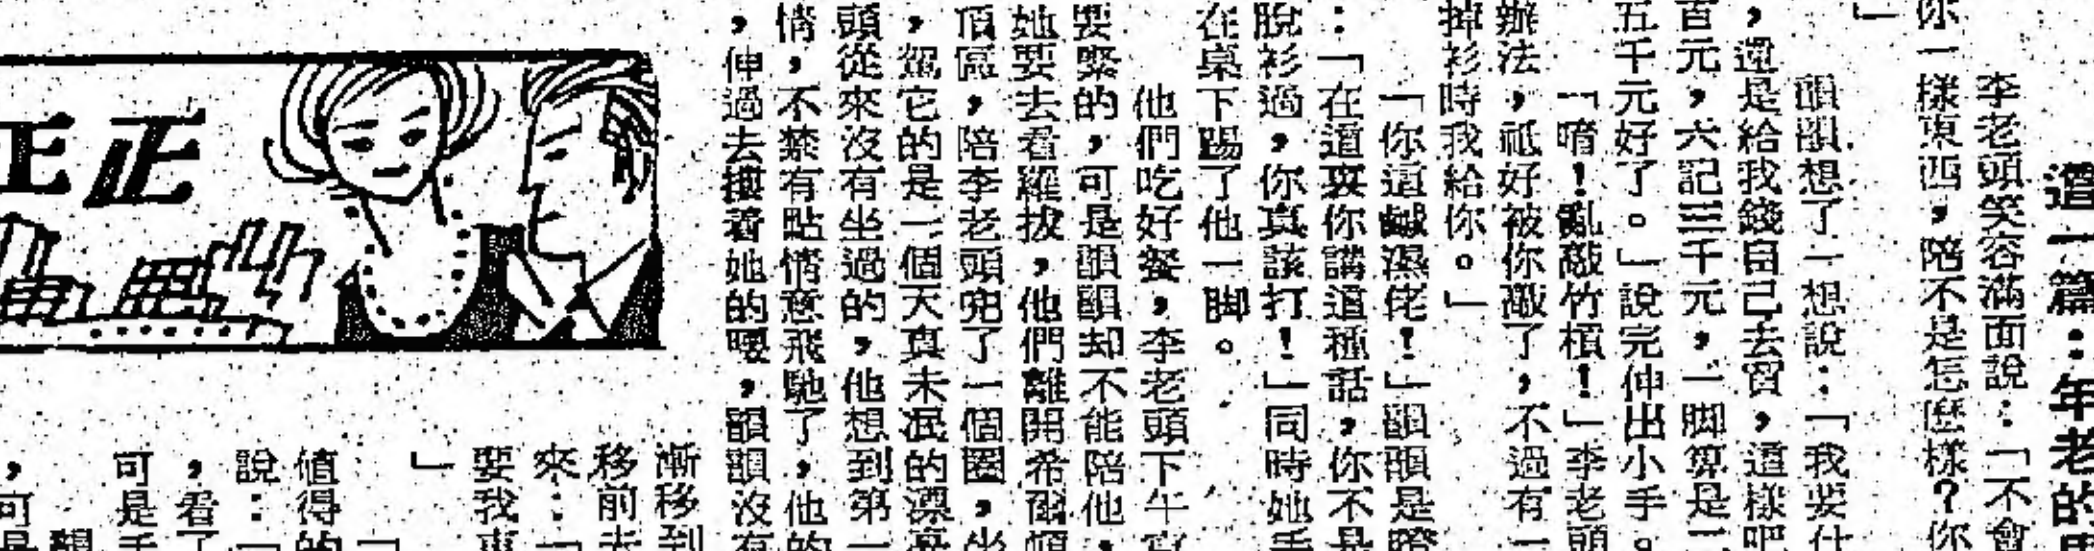 這一篇：年老的
李老頭笑容滿面說：「不會
你一樣東西，陪不是怎麼樣？你
」
韻韻想了一想說：「我要什
，還是給我錢自己去買，這樣吧
百元，六記三千元，一脚算是二
五千元好了。」說完伸出小手。
「唷！亂敲竹槓！」李老頭
辦法，祗好被你敲了，不過有一
掉衫時我給你。」
「你這鹹濕佬！」韻韻是瞪
：「在這裏你講這種話，你不是
脫衫過，你真該打！」同時她手
在桌下踢了他一脚。
他們吃好餐，李老頭下午
要緊的，可是韻韻却不能陪他，
她要去看羅拔，他們離開希爾頓
頂區，陪李老頭兜了一個圈，坐
，駕它的是一個天真未泯的漂亮
頭從來沒有坐過的，他想到第一
情，不禁有點情意飛馳了，他的
，伸過去摟着她的腰，韻韻沒有
正王
漸移到
移前去
來：「
要我
」
「
值得的
說：「
，看了
可是手
韻
，可是